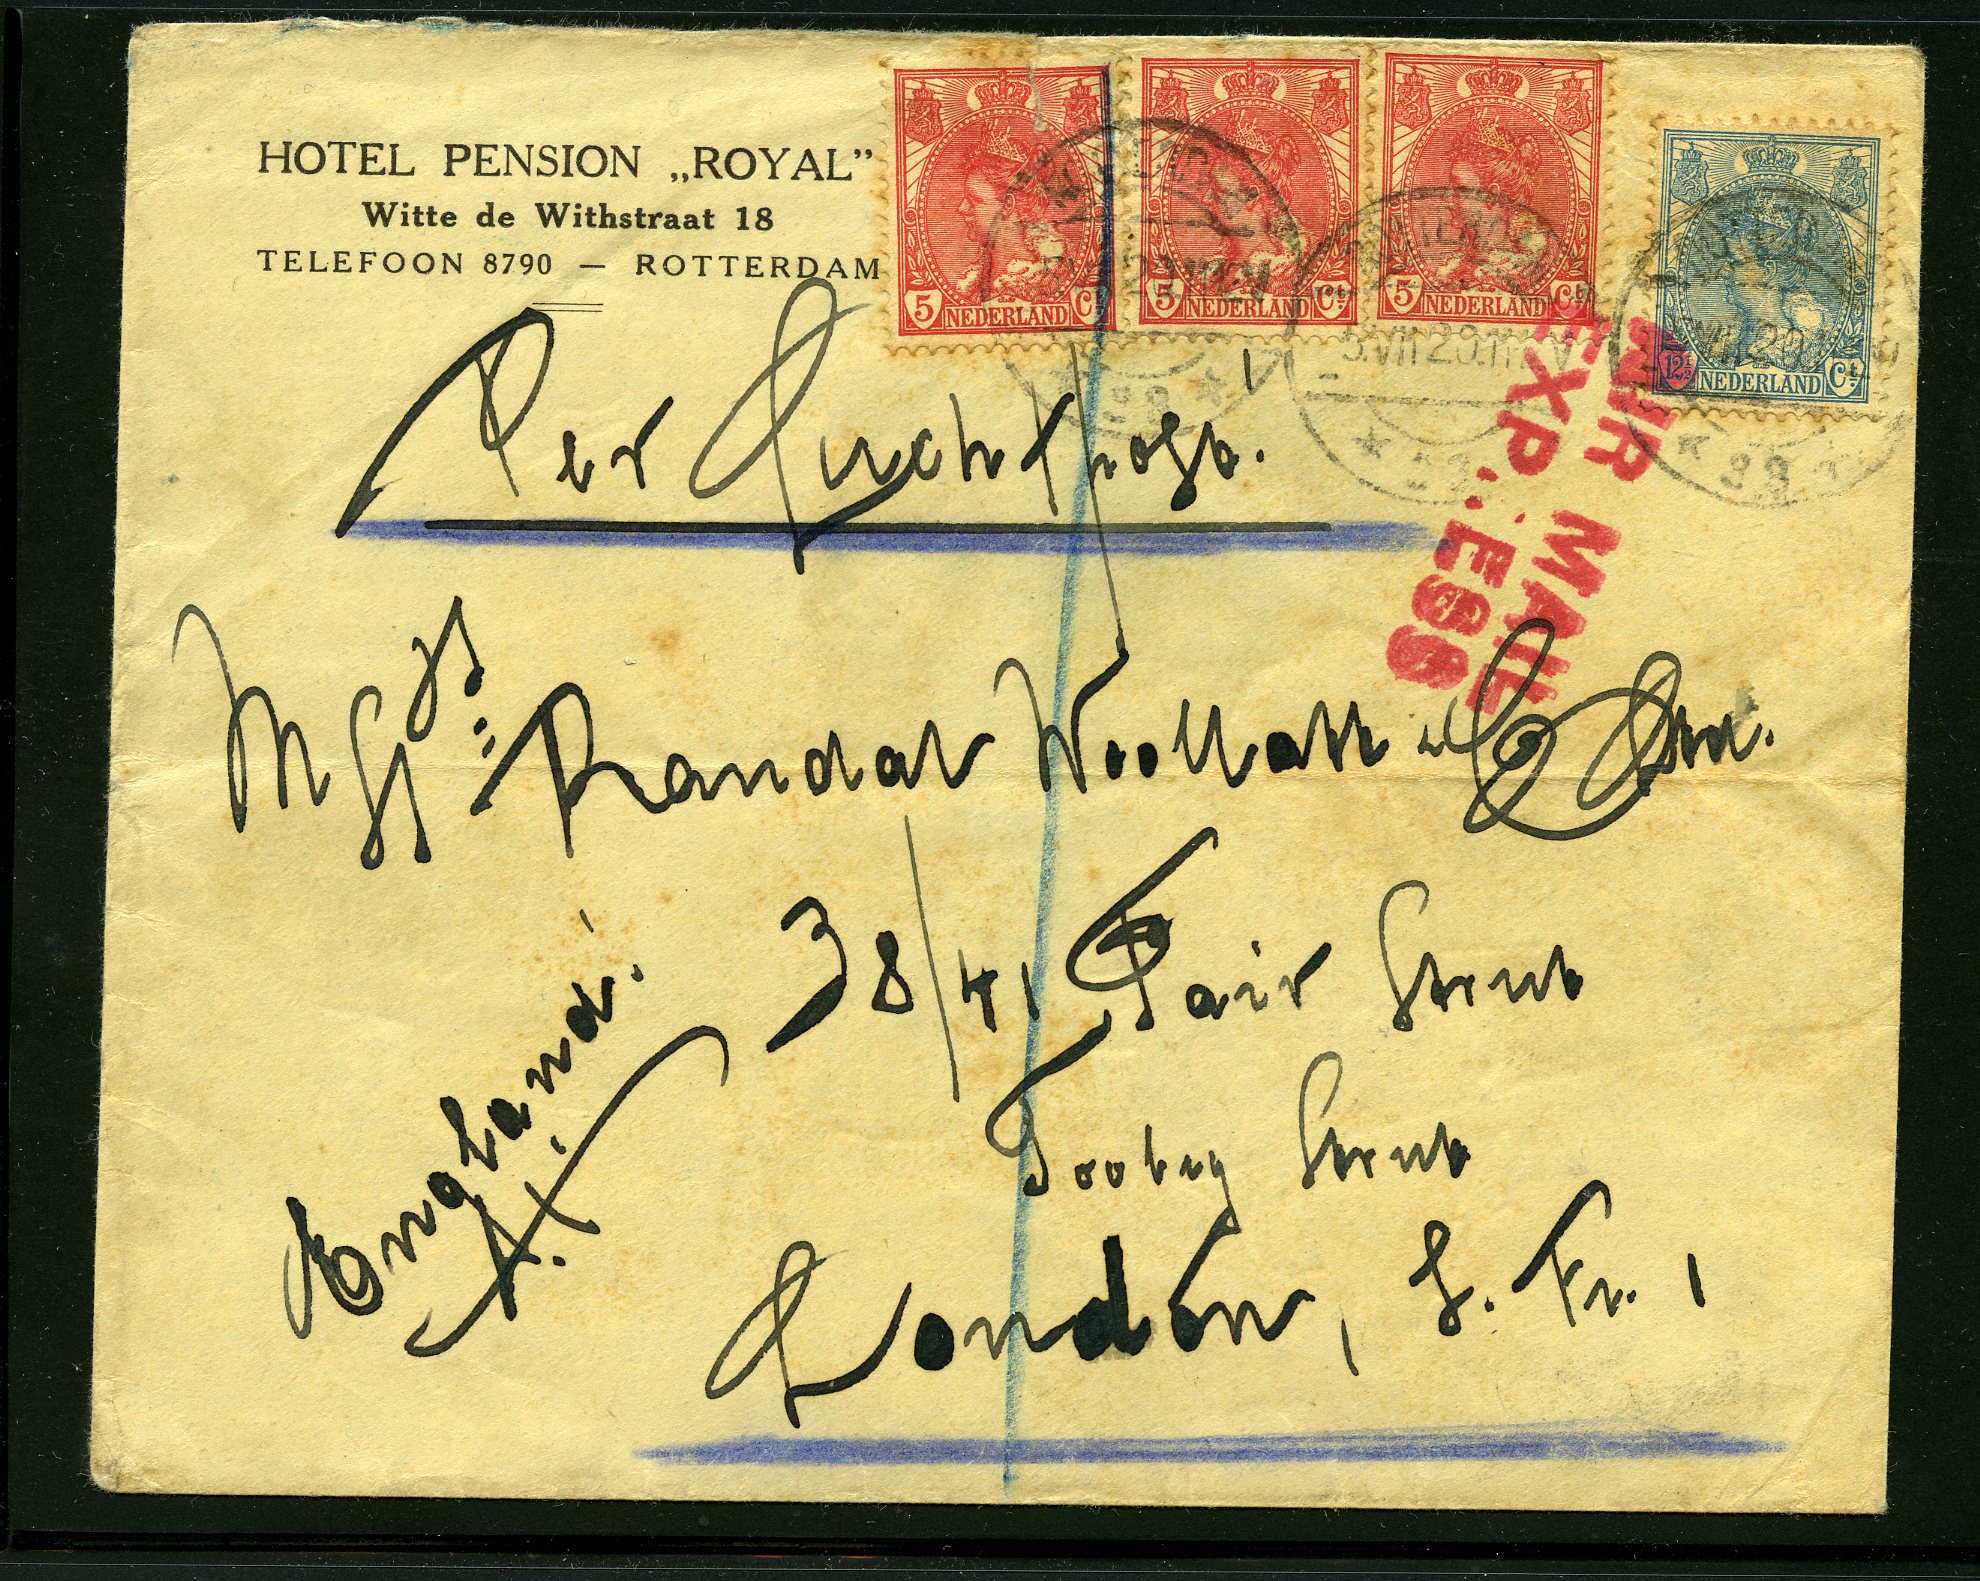 HOTEL PENSION „ROYAL”
Witte de Withstraat 18
TELEFOON 8790 — ROTTERDAM
5 NEDERLAND Ct
5 NEDERLAND Ct
5 NEDERLAND Ct
12½ NEDERLAND Ct
5.VII.20.
AIR MAIL
EXP..ESS
Per Luchtpost.
Messrs Randal Woollatt & Co Ltd.
38/41 Fair Street
Tooley Street
London, S. 1
England.